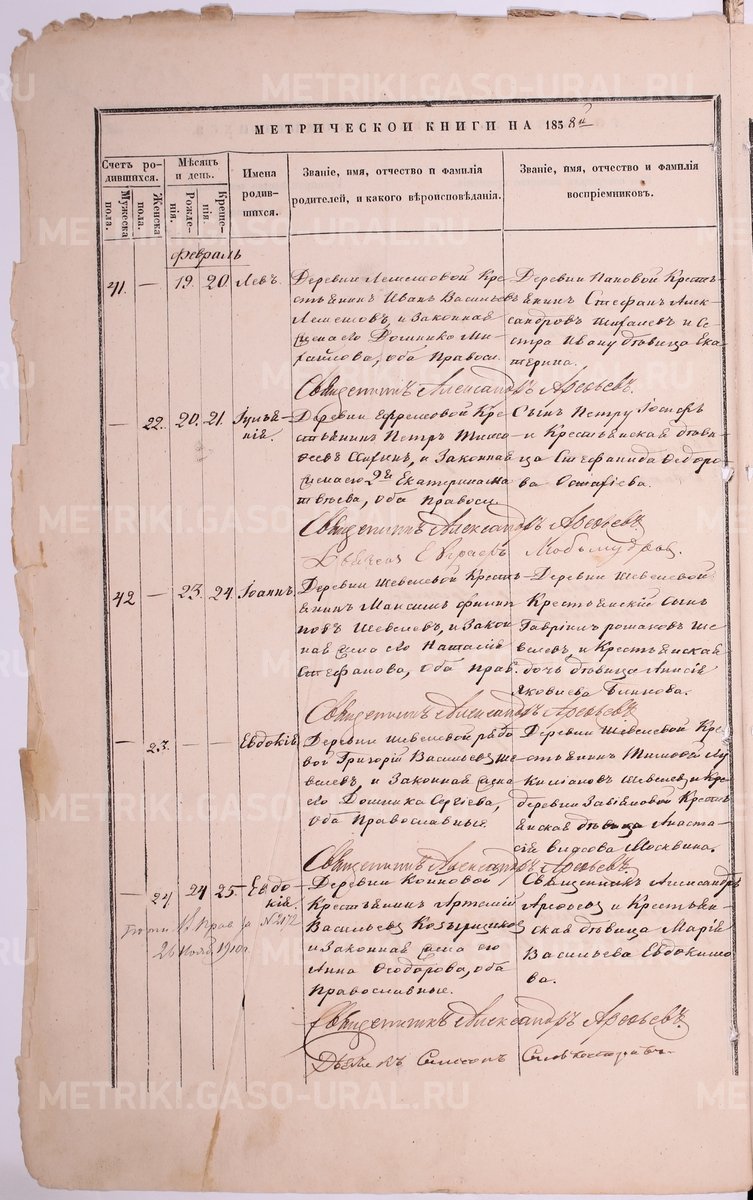 МЕТРИЧЕСКОЙ КНИГИ НА 1858й
Счетъ родившихся.
Мужеска пола.
Женска пола.
Мѣсяцъ и день.
Рожденія.
Крещенія.
Имена родившихся.
Званіе, имя, отчество и фамилія
родителей, и какого вѣроисповѣданія.
Званіе, имя, отчество и фамилія
воспріемниковъ.
Февраль
41. — 19. 20. Левъ.
Деревни Лемешовой Кре-
стьянинъ Иванъ Васильевъ
Лемешовъ, и Законная
жена его Домника Ми-
хайлова, оба Правосл.
Деревни Пановой Кресть-
янинъ Стефанъ Алек-
сандровъ и Се-
стра Ивану дѣвица Ека-
терина.
Священникъ Александръ Арефьевъ.
— 22. 20. 21.
Деревни Ефремовой Кре-
стьянинъ Петръ Тимо-
феевъ и Законная
жена его 2я Екатерина Ма-
твѣева, оба Правосл.
Сынъ Петру Іосифъ
и Крестьянская дѣви-
ца Стефанида Ѳедоро-
ва
Священникъ Александръ Арефьевъ.
42 — 23. 24. Іоаннъ.
Деревни Шевелевой Кресть-
янинъ Максимъ Филип-
повъ Шевелевъ, и Закон-
ная жена его Наталія
Стефанова, оба Прав.
Деревни Шевелевой
Крестьянскій сынъ
Гавріилъ Романовъ Ше-
велевъ, и Крестьянская
дочь дѣвица Анисія
Яковлева Блинова.
Священникъ Александръ Арефьевъ.
— 23. — — Евдокія.
Деревни Шевелевой рядо-
вой Григорій Васильевъ Ше-
велевъ, и Законная жена
его Домника Сергіева,
оба Православные.
Деревни Шевелевой Кре-
стьянинъ Тимофей Лу-
киліановъ Шевелевъ, и
деревни Крестья-
янская дѣвица Анаста-
сія Москвина.
Священникъ Александръ Арефьевъ.
— 24. 24 25. Евдо-
кія.
Деревни Конновой
Крестьянинъ Артемій
Васильевъ
и Законная жена его
Анна Ѳеодорова, оба
Православные.
Священникъ Александръ
Арефьевъ и Крестьян-
ская дѣвица Марія
Васильева Евдокимо-
ва.
за №2172
26 Нояб. 1910г.
Священникъ Александръ Арефьевъ.
METRIKI.GASO-URAL.RU